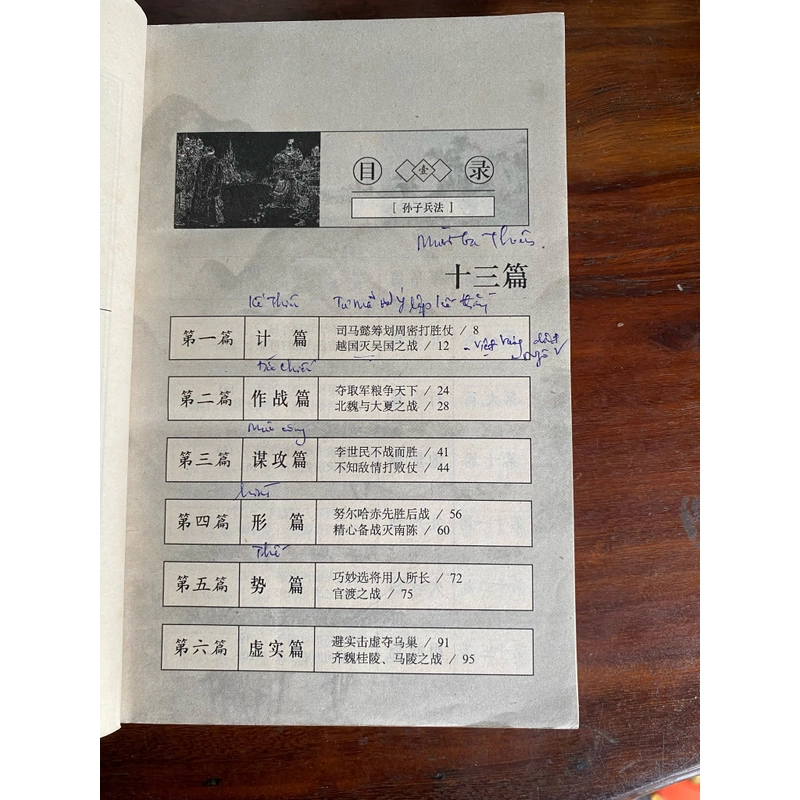 目 壹 录
[ 孙子兵法 ]
Mười ba Thiên.
十三篇
Kế Thiên Tư Mã Ý lập kế thắng
第一篇 计 篇 司马懿筹划周密打胜仗 / 8
越国灭吴国之战 / 12
Tác chiến
第二篇 作战篇 夺取军粮争天下 / 24
北魏与大夏之战 / 28
Mưu công
第三篇 谋攻篇 李世民不战而胜 / 41
不知敌情打败仗 / 44
hình
第四篇 形 篇 努尔哈赤先胜后战 / 56
精心备战灭南陈 / 60
Thế
第五篇 势 篇 巧妙选将用人所长 / 72
官渡之战 / 75
第六篇 虚实篇 避实击虚夺乌巢 / 91
齐魏桂陵、马陵之战 / 95